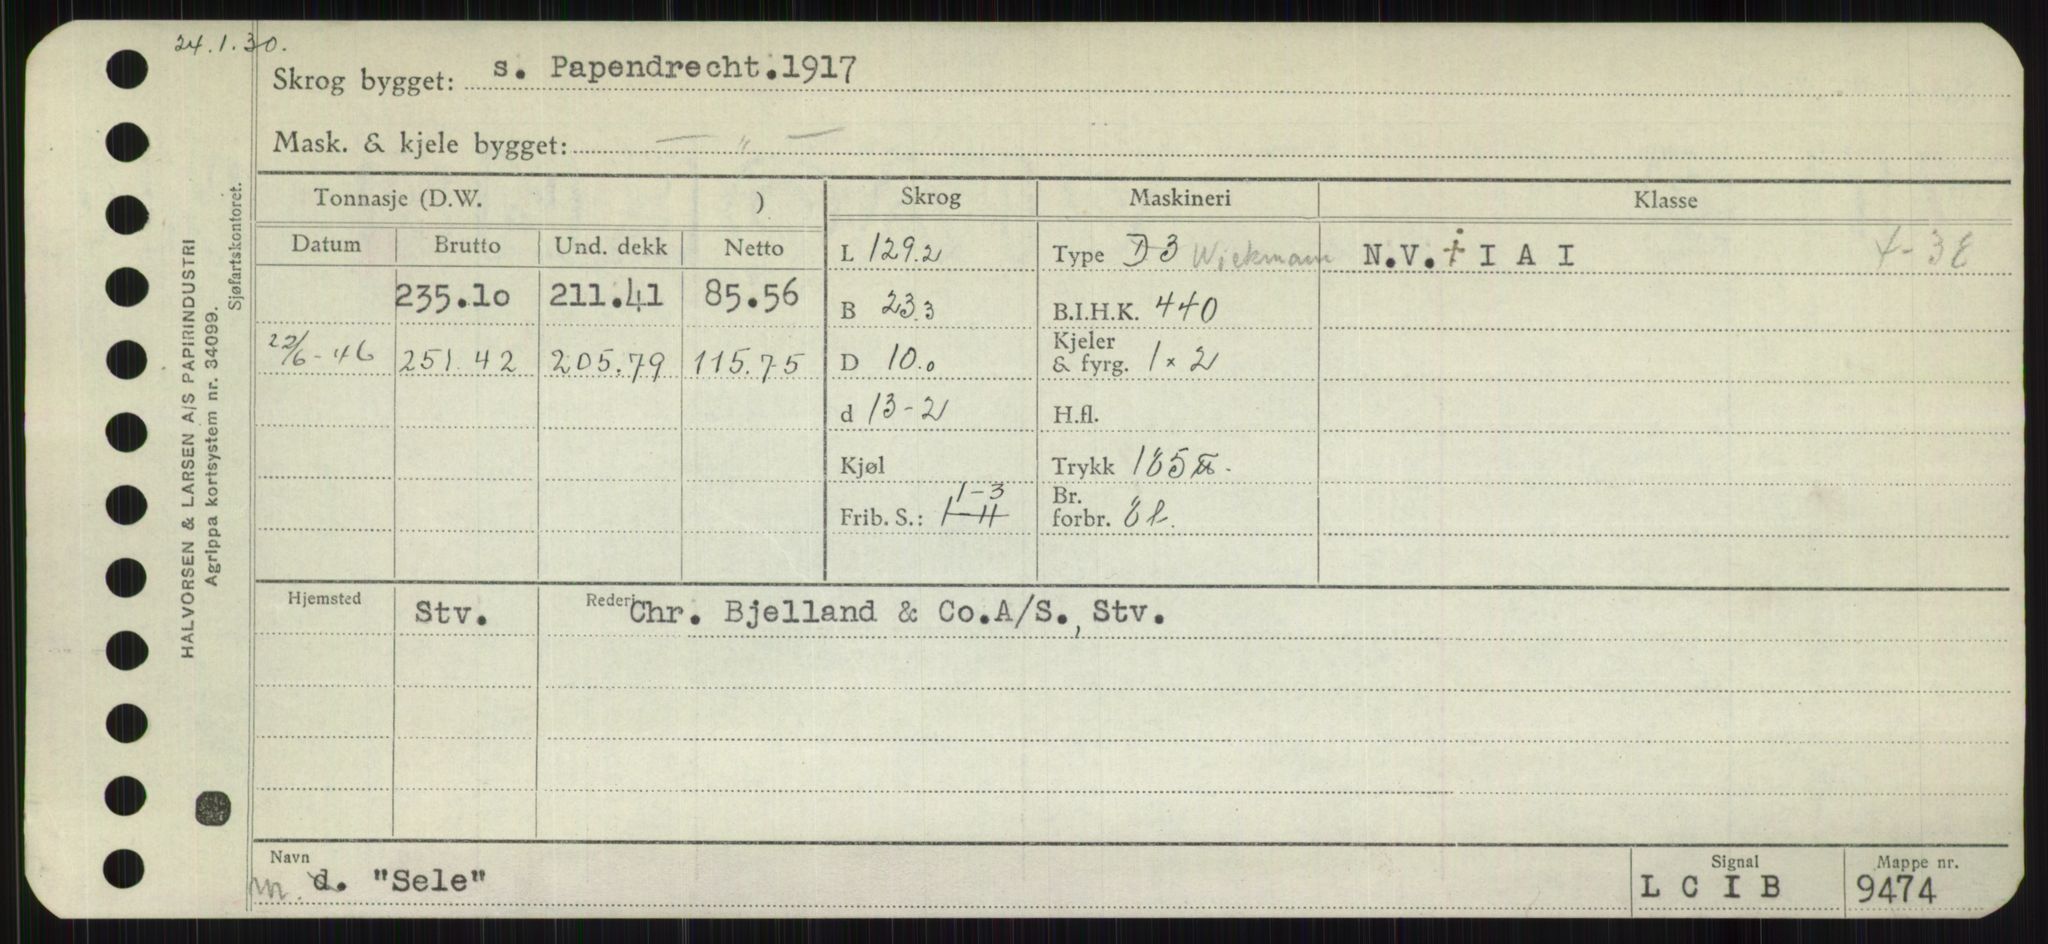 24.1.30.
Skrog bygget: s. Papendrecht.1917
Mask. & kjele bygget: — " —
Tonnasje (D.W. ) Skrog Maskineri Klasse
Datum Brutto Und. dekk Netto
L 129.2 Type D 3 Wickmann N.V.+ I A I
235.10 211.41 85.56
B 23.3 B.I.H.K. 440
22/6-46 251.42 205.79 115.75
D 10.0 Kjeler & fyrg. 1 × 2
d 13-2 H.fl.
Kjøl Trykk 185
Frib. S.: 1-11 1-3 Br. forbr.
Hjemsted Stv. Rederi Chr. Bjelland & Co.A/S., Stv.
Navn m. d. "Sele"
Signal L C I B
Mappe nr. 9474
HALVORSEN & LARSEN A/S PAPIRINDUSTRI
Agrippa kortsystem nr. 34099.
Sjøfartskontoret.